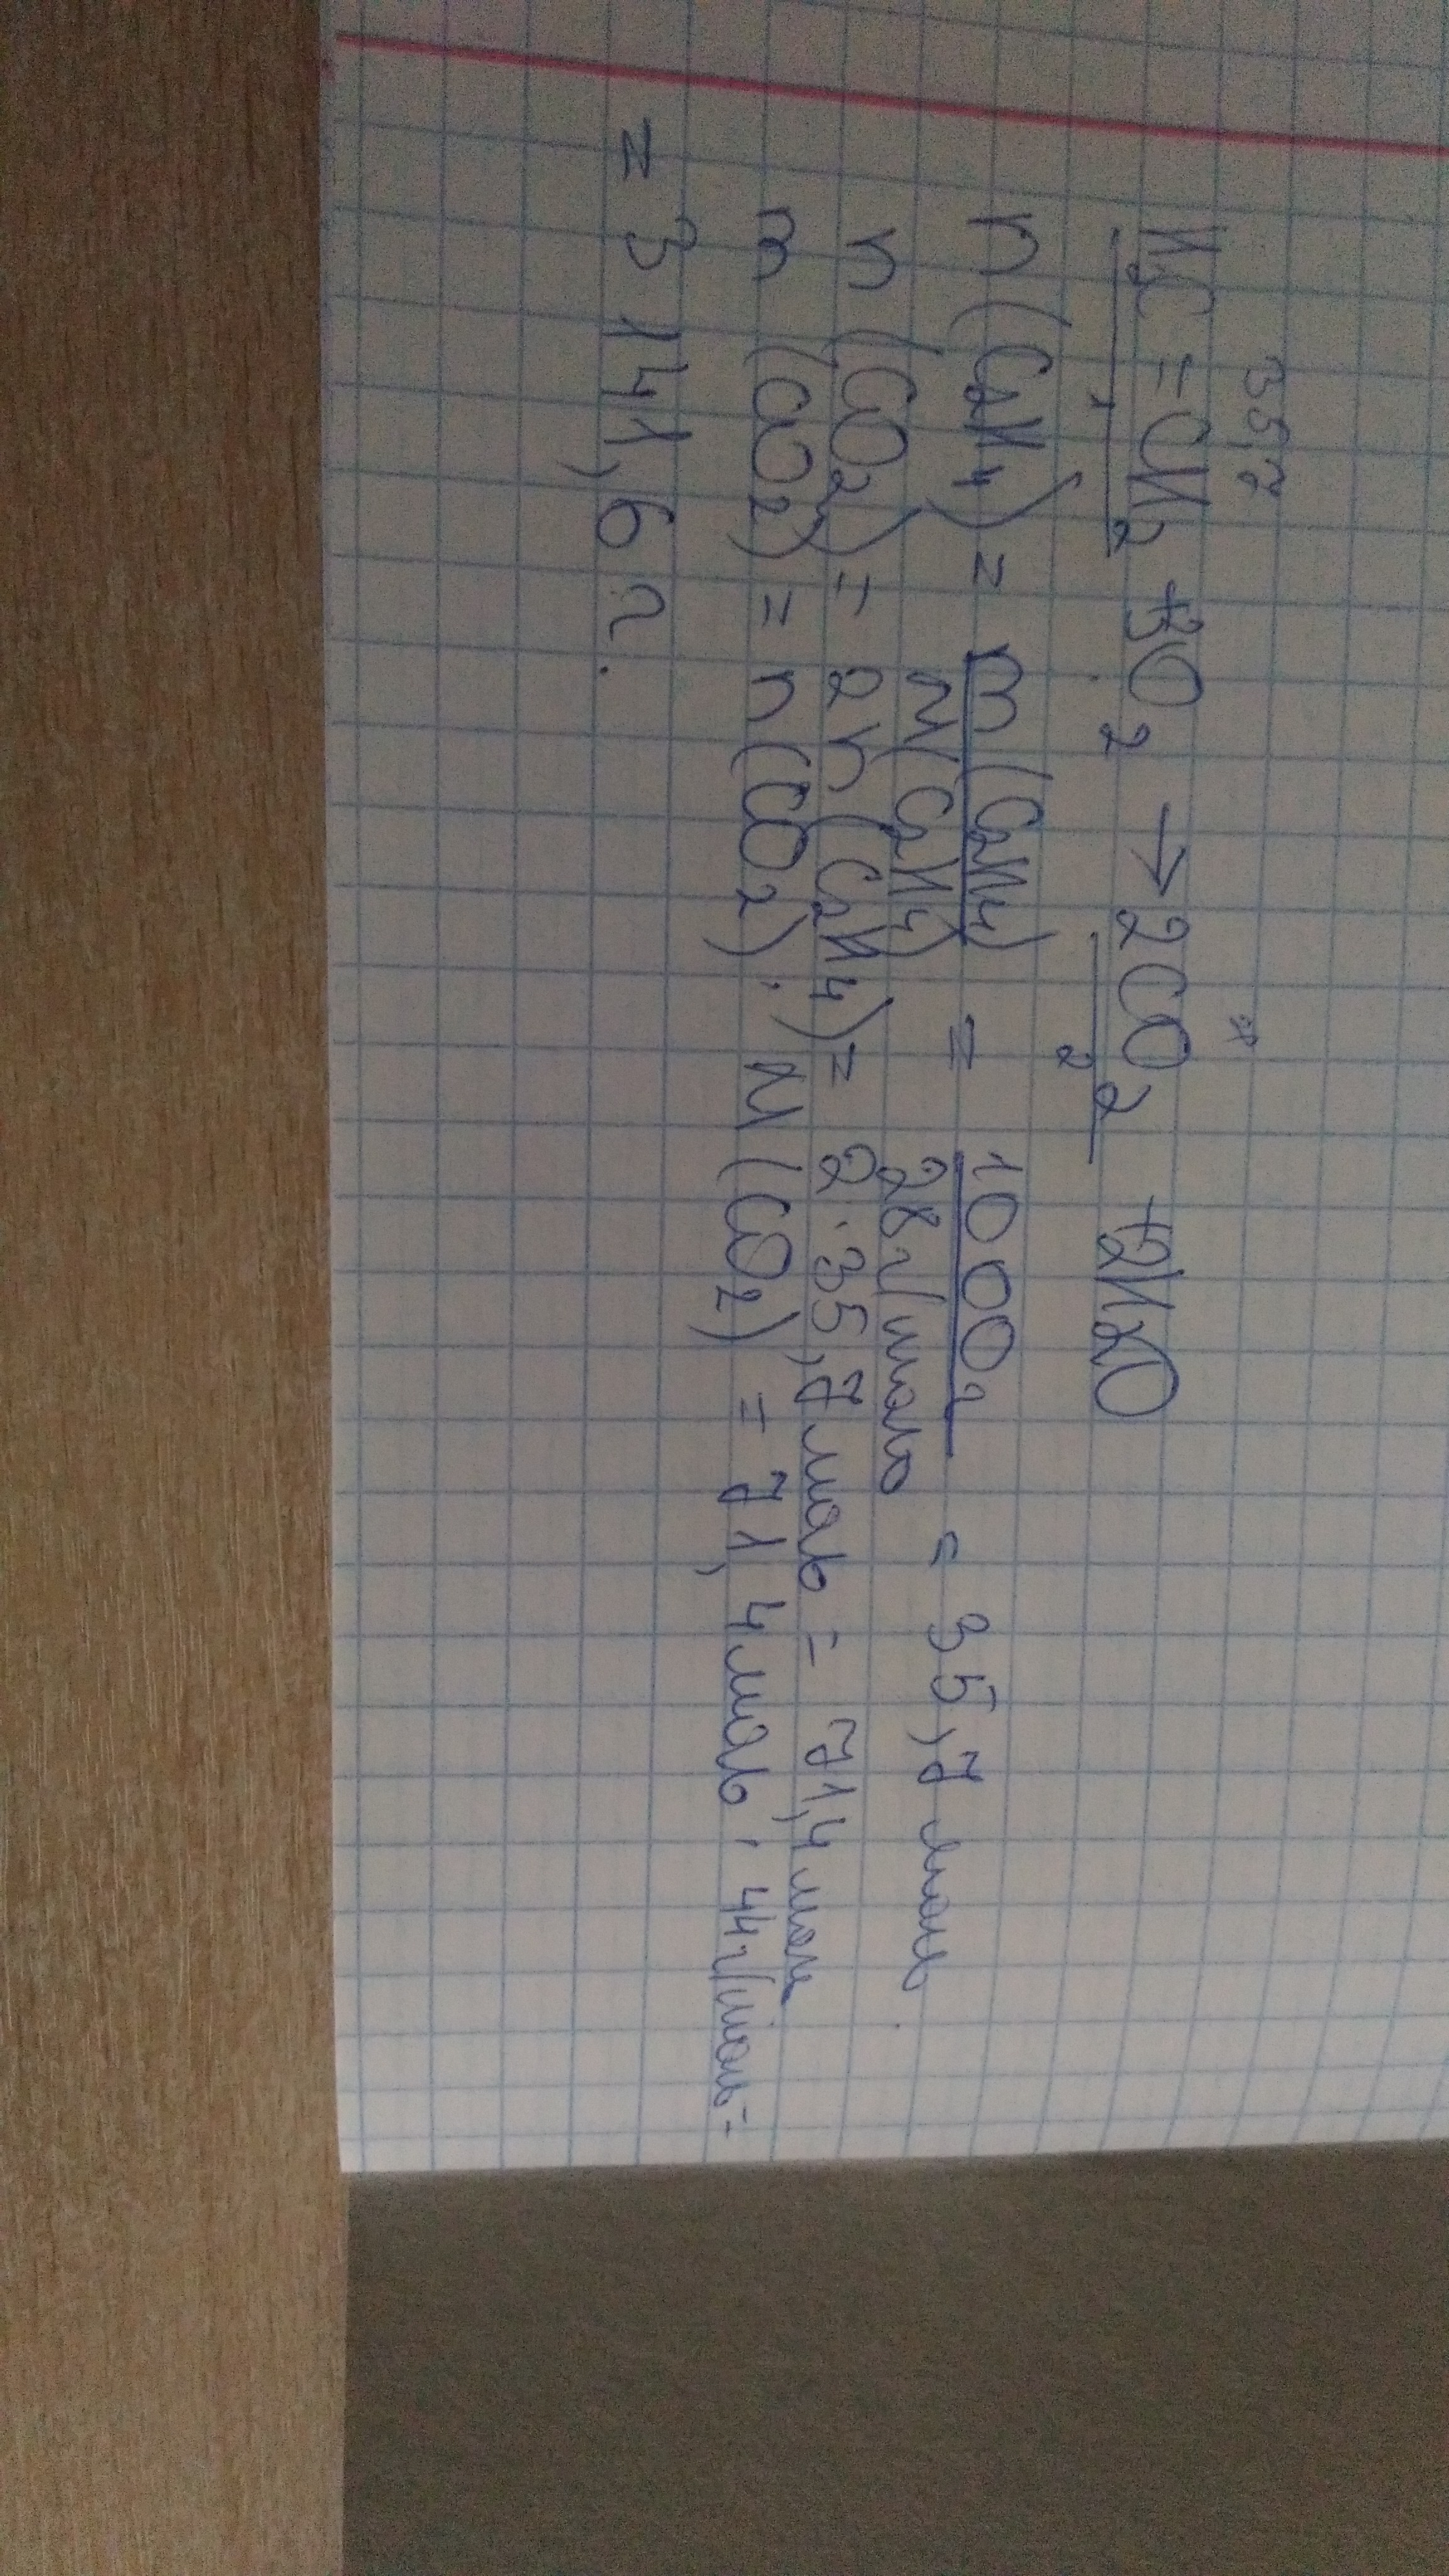 35,7 x
H₂C=CH₂ +3O₂ → 2CO₂ +2H₂O
1 2
n (C₂H₄) = m (C₂H₄) = 1000г = 35,7 моль
M(C₂H₄) 28г/моль
n (CO₂) = 2n (C₂H₄) = 2·35,7моль = 71,4моль
m (CO₂) = n (CO₂) · M (CO₂) = 71,4моль · 44г/моль=
= 3 141,6 г.